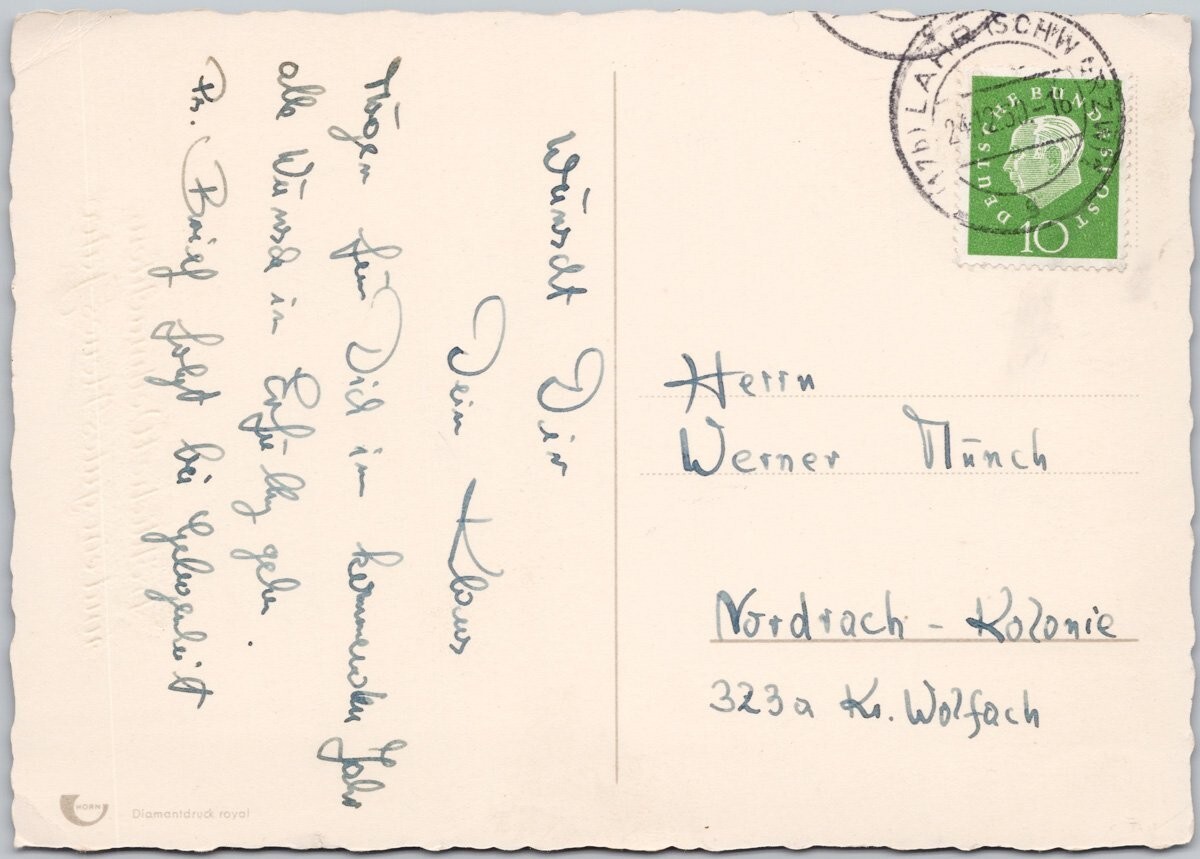 Wünscht Dir
Dein Klaus
Mögen für Dich im kommenden Jahr
alle Wünsche in Erfüllg gehen.
Ps. Brief folgt bei Gelegenheit
(17b) LAHR (SCHWARZW)
24.12.60.-16
g
DEUTSCHE BUNDESPOST
10
Herrn
Werner Münch
Nordrach - Kolonie
323a Kr. Wolfach
HORN
Diamantdruck royal